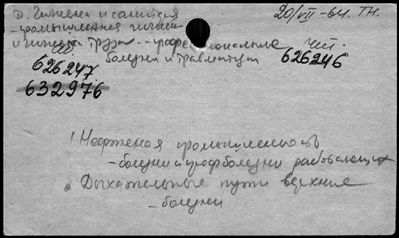 Д. Гигиена и санитария 20/VII-64. ТН.
- промышленная гигиена
и гигиена труда - профессиональные чит.
чит. болезни и травматизм 626246
626247
632976
1 Нефтяная промышленность
- болезни и профболезни работающих
2 Дыхательные пути верхние
- болезни